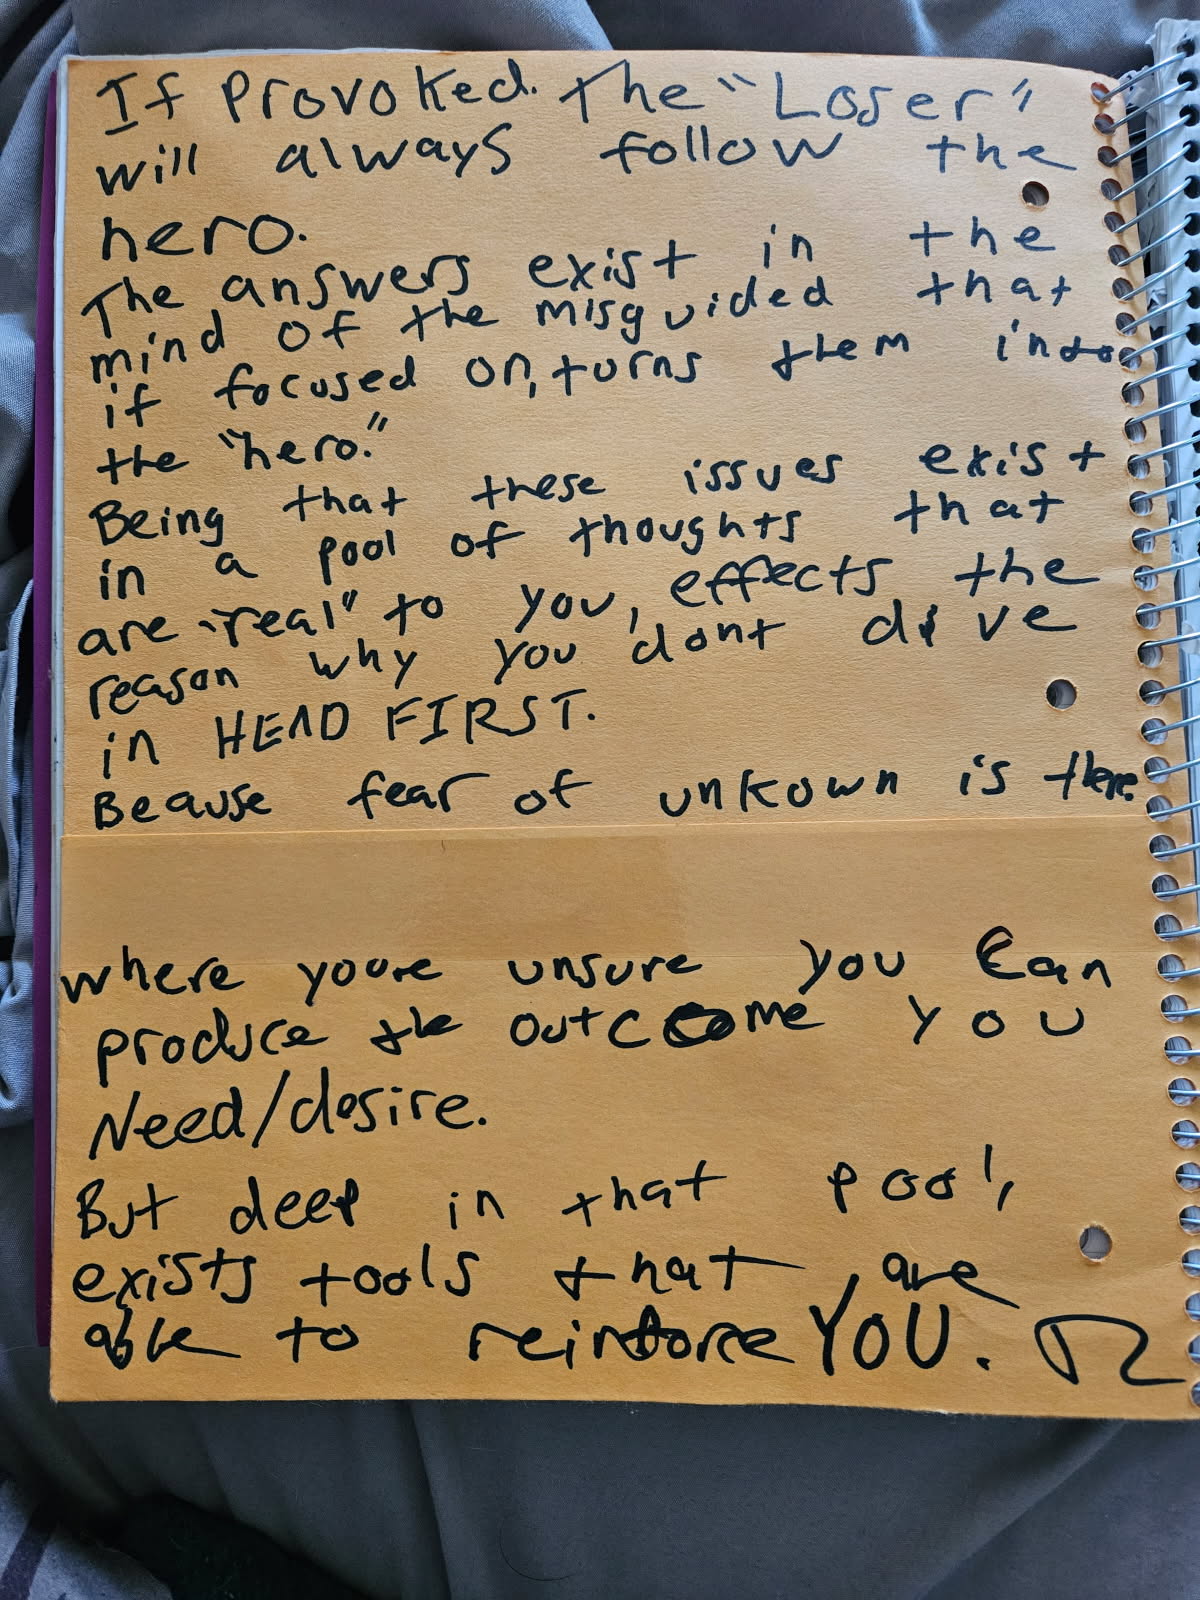 If Provoked. The "Loser"
will always follow the
hero.
The answers exist in the
mind of the misguided that
if focused on, turns them into
the "hero."
Being that these issues exist
in a pool of thoughts that
are "real" to you, effects the
reason why you dont dive
in HEAD FIRST.
Beause fear of unkown is there.
where youre unsure you can
produce the outcome you
Need/desire.
But deep in that pool,
exists tools that are
able to reinforce YOU.